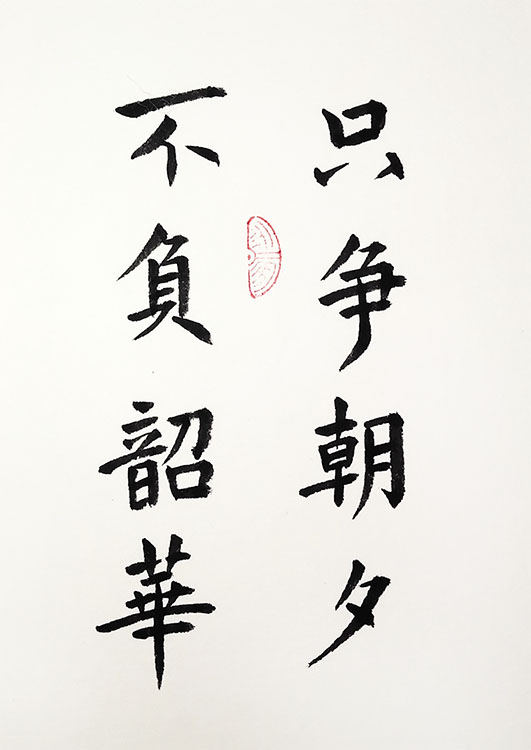 只争朝夕
不負韶華